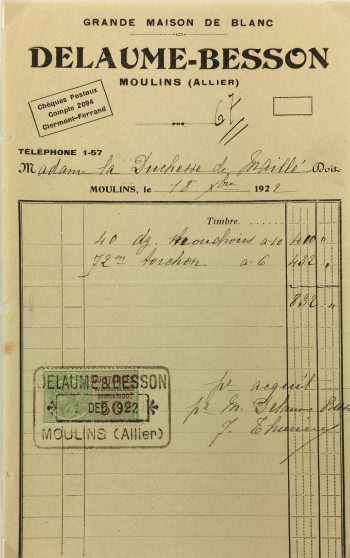 GRANDE MAISON DE BLANC
DELAUME-BESSON
MOULINS (ALLIER)
Chèques Postaux
Compte 2094
Clermont-Ferrand
67
TÉLÉPHONE 1-57
Madame la Duchesse de Maillé Doit
MOULINS, le 18 Xbre 1922
Timbre.
40 dz mouchoirs a 10 400 "
72m torchon a 6 432 "
832 "
DELAUME & BESSON
DEC 1922
MOULINS (Allier)
pr acquit
pr M. Delaume Besson